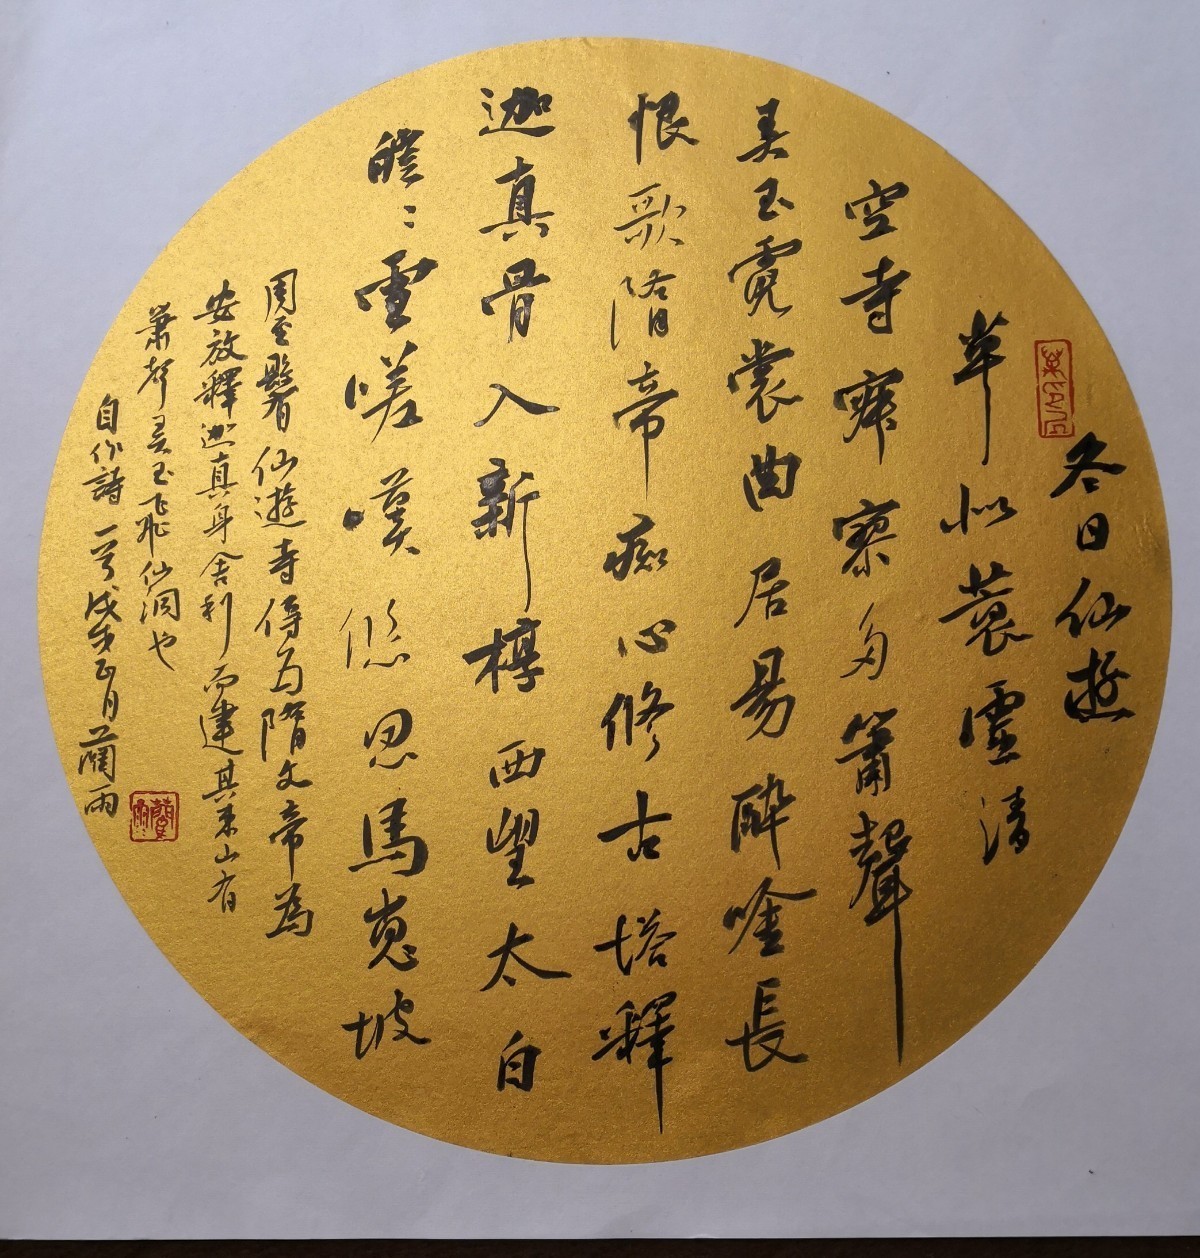 冬日仙遊
草似蓑雲清
空寺寂寥多簫聲
美玉霓裳曲居易醉吟長
恨歌隋帝痴心修古塔釋
迦真骨入新槨西望太白
皚々雪嗟嘆悠思馬嵬坡
周至 仙遊寺傳為隋文帝為
安放釋迦真身舍利而建其東山有
蕭聲美玉飛仙洞也
自作詩一首戊戌正月蘭雨